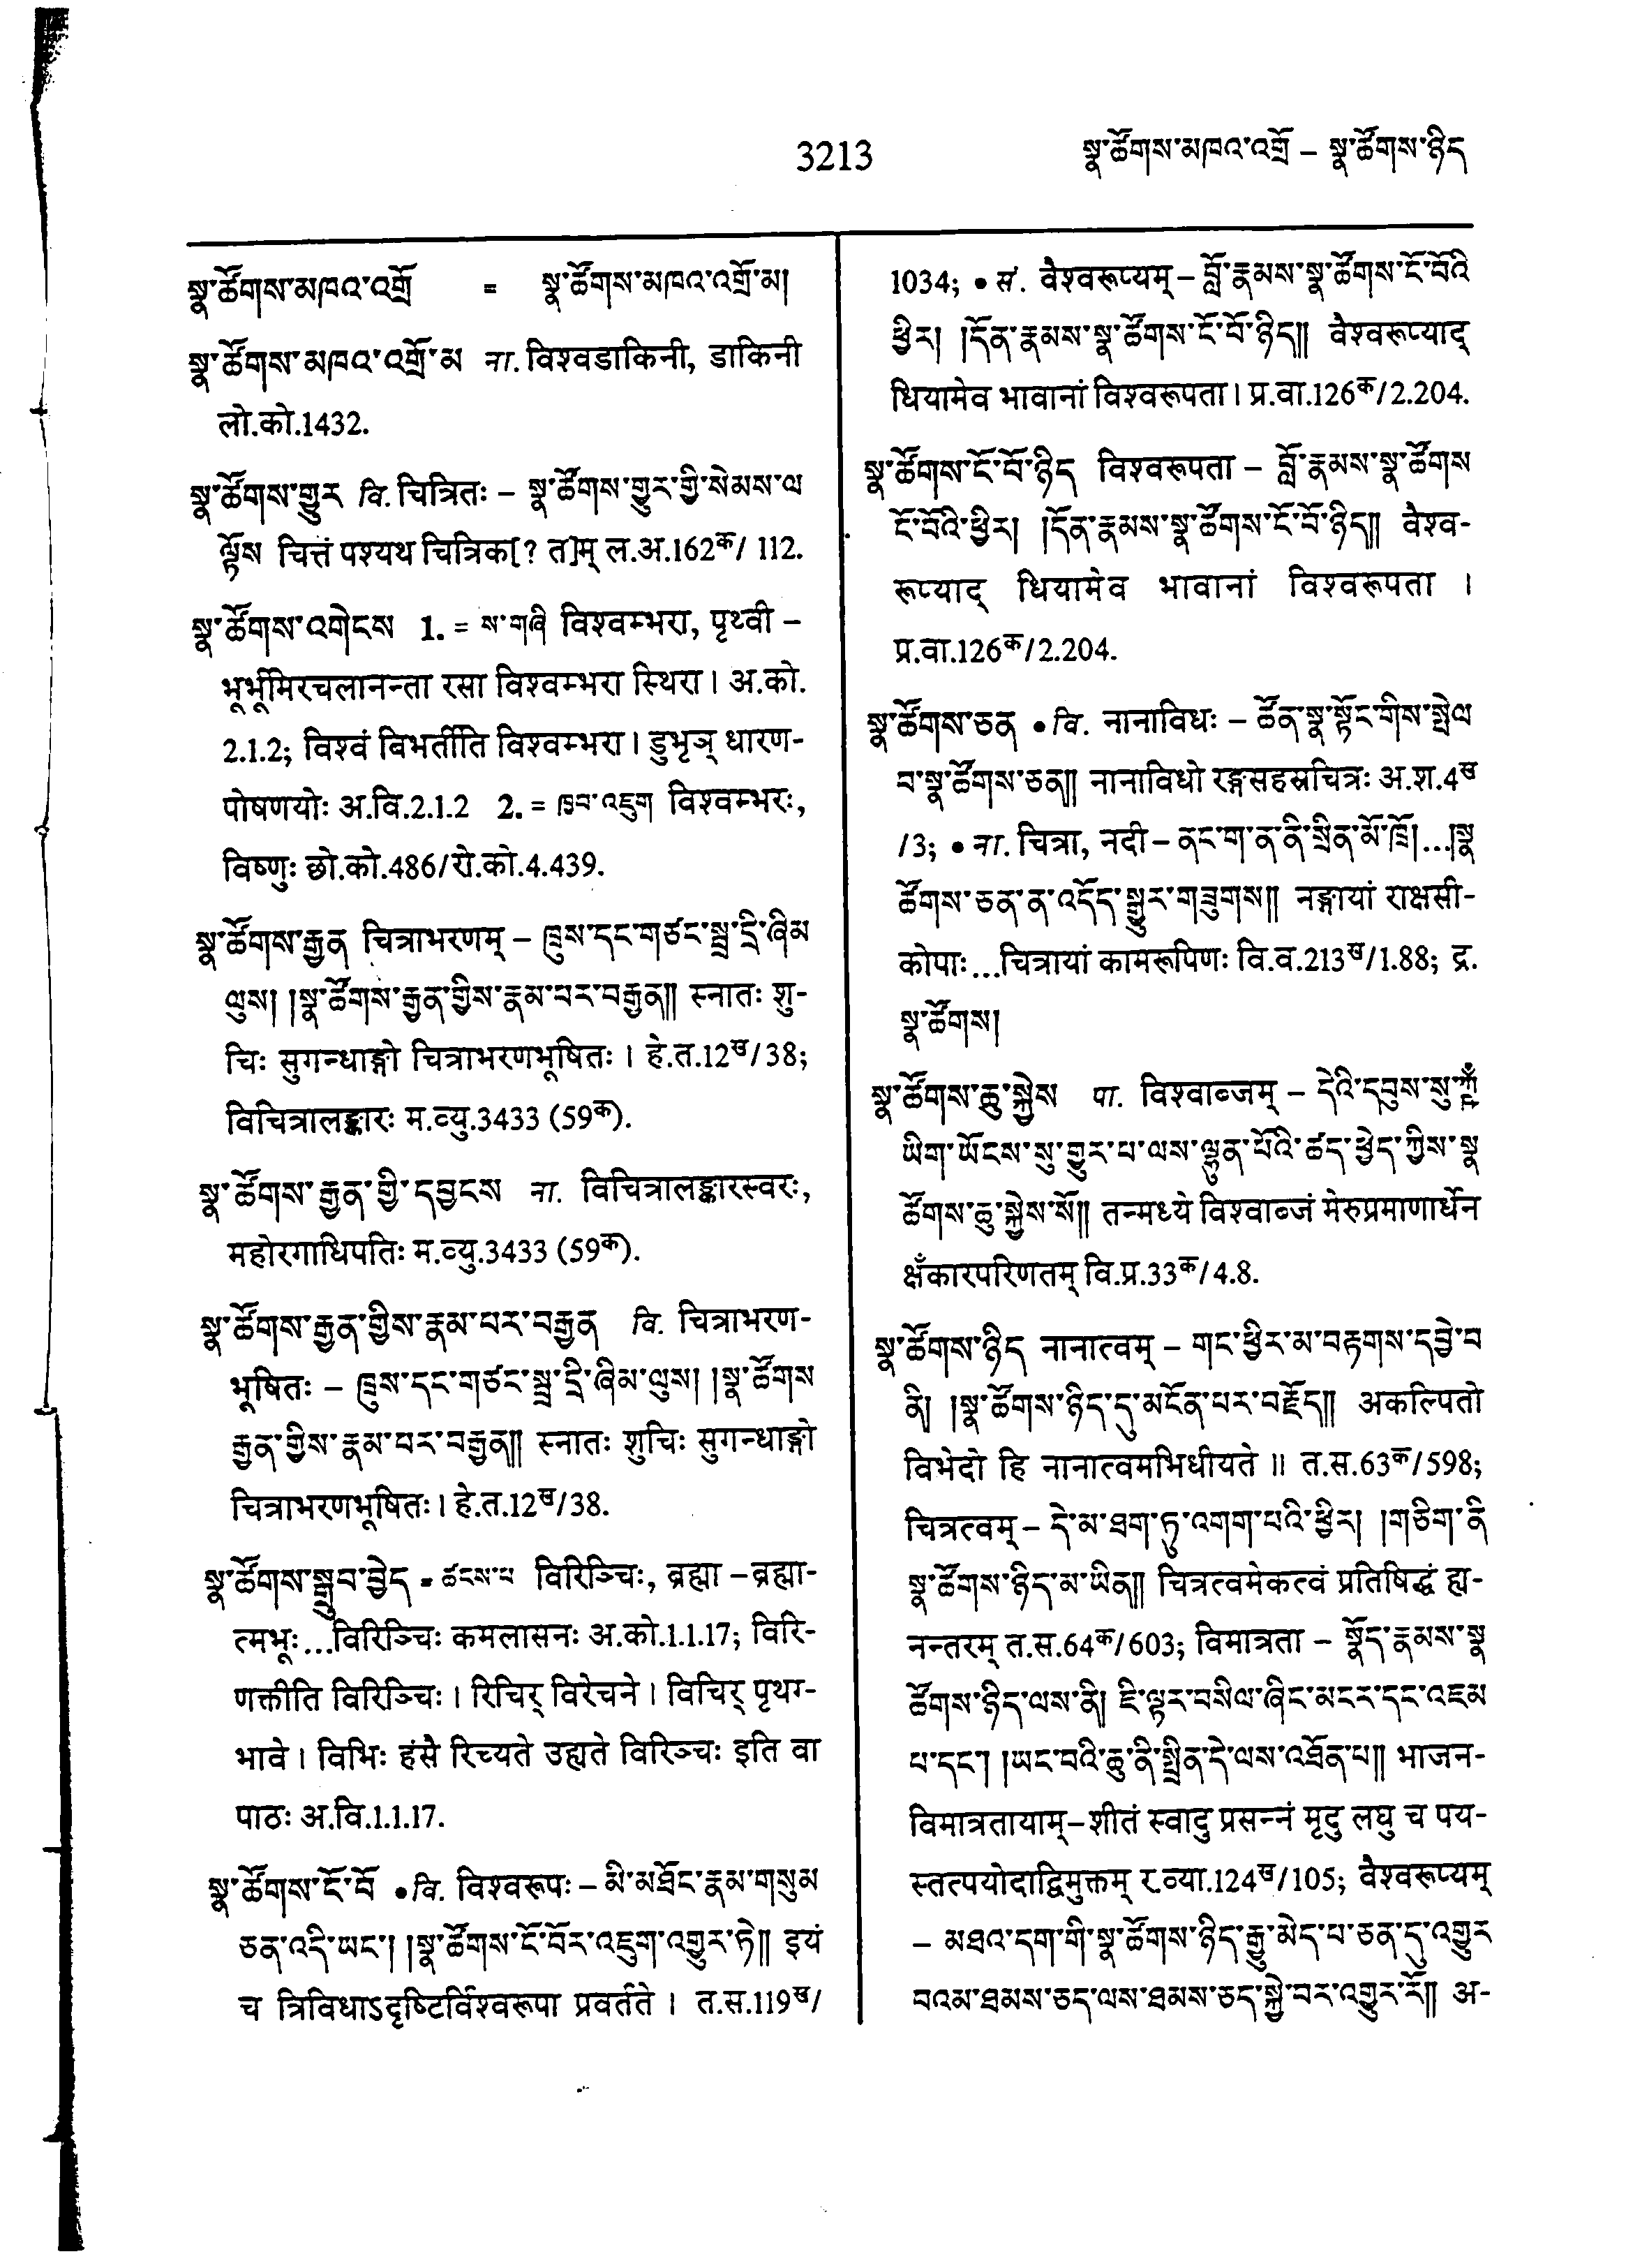 3213
སྣ་ཚོགས་མཁའ་འགྲོ – སྣ་ཚོགས་ཉིད
སྣ་ཚོགས་མཁའ་འགྲོ = སྣ་ཚོགས་མཁའ་འགྲོ་མ།
སྣ་ཚོགས་མཁའ་འགྲོ་མ ना. विश्वडाकिनी, डाकिनी
लो.को.1432.
སྣ་ཚོགས་གྱུར वि. चित्रितः – སྣ་ཚོགས་གྱུར་གྱི་སེམས་ལ
ལྟོས चित्तं पश्यथ चित्रिक[? त]म् ल.अ.162क/ 112.
སྣ་ཚོགས་འགེངས 1. = ས་གཞི विश्वम्भरा, पृथ्वी –
भूर्भूमिरचलानन्ता रसा विश्वम्भरा स्थिरा। अ.को.
2.1.2; विश्वं बिभर्तीति विश्वम्भरा। डुभृञ् धारण-
पोषणयोः अ.वि.2.1.2 2. = ཁྱབ་འཇུག विश्वम्भरः,
विष्णुः छो.को.486/रो.को.4.439.
སྣ་ཚོགས་རྒྱན चित्राभरणम् – ཁྲུས་དང་གཙང་སྦྲ་དྲི་ཞིམ
ལུས། །སྣ་ཚོགས་རྒྱན་གྱིས་རྣམ་པར་བརྒྱན།། स्नातः शु-
चिः सुगन्धाङ्गो चित्राभरणभूषितः। हे.त.12ख/38;
विचित्रालङ्कारः म.व्यु.3433 (59क).
སྣ་ཚོགས་རྒྱན་གྱི་དབྱངས ना. विचित्रालङ्कारस्वरः,
महोरगाधिपतिः म.व्यु.3433 (59क).
སྣ་ཚོགས་རྒྱན་གྱིས་རྣམ་པར་བརྒྱན वि. चित्राभरण-
भूषितः – ཁྲུས་དང་གཙང་སྦྲ་དྲི་ཞིམ་ལུས། །སྣ་ཚོགས
རྒྱན་གྱིས་རྣམ་པར་བརྒྱན།། स्नातः शुचिः सुगन्धाङ्गो
चित्राभरणभूषितः। हे.त.12ख/38.
སྣ་ཚོགས་སྒྲུབ་བྱེད = ཚངས་པ विरिञ्चिः, ब्रह्मा – ब्रह्मा-
त्मभूः...विरिञ्चिः कमलासनः अ.को.1.1.17; विरि-
णक्तीति विरिञ्चिः। रिचिर् विरेचने। विचिर् पृथग्-
भावे। विभिः हंसै रिच्यते उह्यते विरिञ्चः इति वा
पाठः अ.वि.1.1.17.
སྣ་ཚོགས་ངོ་བོ • वि. विश्वरूपः – མི་མཐོང་རྣམ་གསུམ
ཅན་འདི་ཡང་། །སྣ་ཚོགས་ངོ་བོར་འཇུག་འགྱུར་ཏེ།། इयं
च त्रिविधाऽदृष्टिर्विश्वरूपा प्रवर्तते। त.स.119ख/
1034; • सं. वैश्वरूप्यम् – བློ་རྣམས་སྣ་ཚོགས་ངོ་བོའི
ཕྱིར། །དོན་རྣམས་སྣ་ཚོགས་ངོ་བོ་ཉིད།། वैश्वरूप्याद्
धियामेव भावानां विश्वरूपता। प्र.वा.126क/2.204.
སྣ་ཚོགས་ངོ་བོ་ཉིད विश्वरूपता – བློ་རྣམས་སྣ་ཚོགས
ངོ་བོའི་ཕྱིར། །དོན་རྣམས་སྣ་ཚོགས་ངོ་བོ་ཉིད།། वैश्व-
रूप्याद् धियामेव भावानां विश्वरूपता।
प्र.वा.126क/2.204.
སྣ་ཚོགས་ཅན • वि. नानाविधः – ཚོན་སྣ་སྟོང་གིས་སྤྲེལ
བ་སྣ་ཚོགས་ཅན།། नानाविधो रङ्गसहस्रचित्रः अ.श.4ख
/3; • ना. चित्रा, नदी – ནང་ག་ན་ནི་སྲིན་མོ་ཁྲོ།...།སྣ
ཚོགས་ཅན་ན་འདོད་སྒྱུར་གཟུགས།། नङ्गायां राक्षसी-
कोपाः...चित्रायां कामरूपिणः वि.व.213ख/1.88; द्र.
སྣ་ཚོགས།
སྣ་ཚོགས་ཆུ་སྐྱེས पा. विश्वाब्जम् – དེའི་དབུས་སུ་ཀྵཾ
ཡིག་ཡོངས་སུ་གྱུར་པ་ལས་ལྷུན་པོའི་ཚད་ཕྱེད་ཀྱིས་སྣ
ཚོགས་ཆུ་སྐྱེས་སོ།། तन्मध्ये विश्वाब्जं मेरुप्रमाणार्धेन
क्षँकारपरिणतम् वि.प्र.33क/4.8.
སྣ་ཚོགས་ཉིད नानात्वम् – གང་ཕྱིར་མ་བརྟགས་དབྱེ་བ
ནི། །སྣ་ཚོགས་ཉིད་དུ་མངོན་པར་བརྗོད།། अकल्पितो
विभेदो हि नानात्वमभिधीयते॥ त.स.63क/598;
चित्रत्वम् – དེ་མ་ཐག་ཏུ་འགག་པའི་ཕྱིར། །གཅིག་ནི
སྣ་ཚོགས་ཉིད་མ་ཡིན།། चित्रत्वमेकत्वं प्रतिषिद्धं ह्य-
नन्तरम् त.स.64क/603; विमात्रता – སྣོད་རྣམས་སྣ
ཚོགས་ཉིད་ལས་ནི། ཇི་ལྟར་བསིལ་ཞིང་མངར་དང་འཇམ
པ་དང་། །ཡང་བའི་ཆུ་ནི་སྤྲིན་དེ་ལས་འཐོན་པ།། भाजन-
विमात्रतायाम्–शीतं स्वादु प्रसन्नं मृदु लघु च पय-
स्तत्पयोदाद्विमुक्तम् र.व्या.124ख/105; वैश्वरूप्यम्
– མཐའ་དག་གི་སྣ་ཚོགས་ཉིད་རྒྱུ་མེད་པ་ཅན་དུ་འགྱུར
བའམ་ཐམས་ཅད་ལས་ཐམས་ཅད་སྐྱེ་བར་འགྱུར་རོ།། अ-